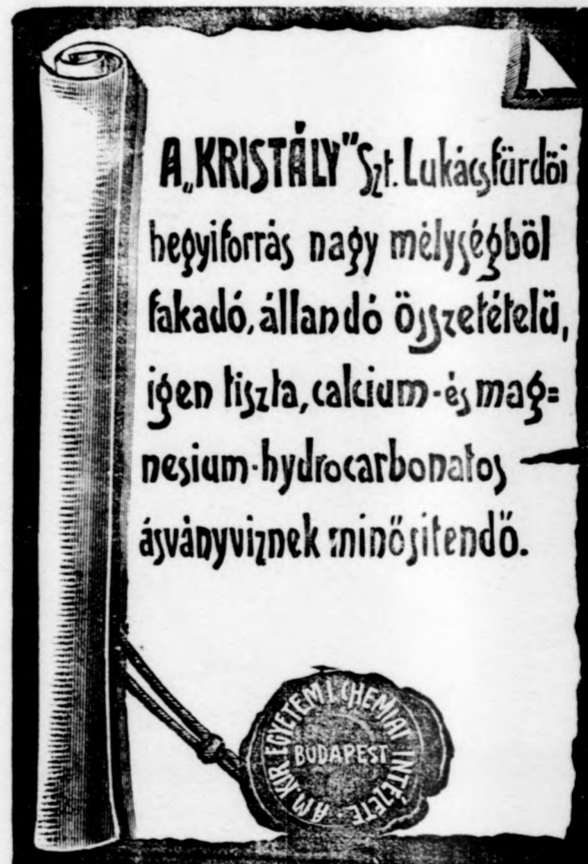 A „KRISTÁLY” Szt. Lukácsfürdői
hegyiforrás nagy mélységből
fakadó, állandó összetételű,
igen tiszta, calcium-és mag=
nesium-hydrocarbonatos
ásványviznek minősítendő.
A M. KIR. EGYETEM I. CHEMIAI INTÉZETE
BUDAPEST